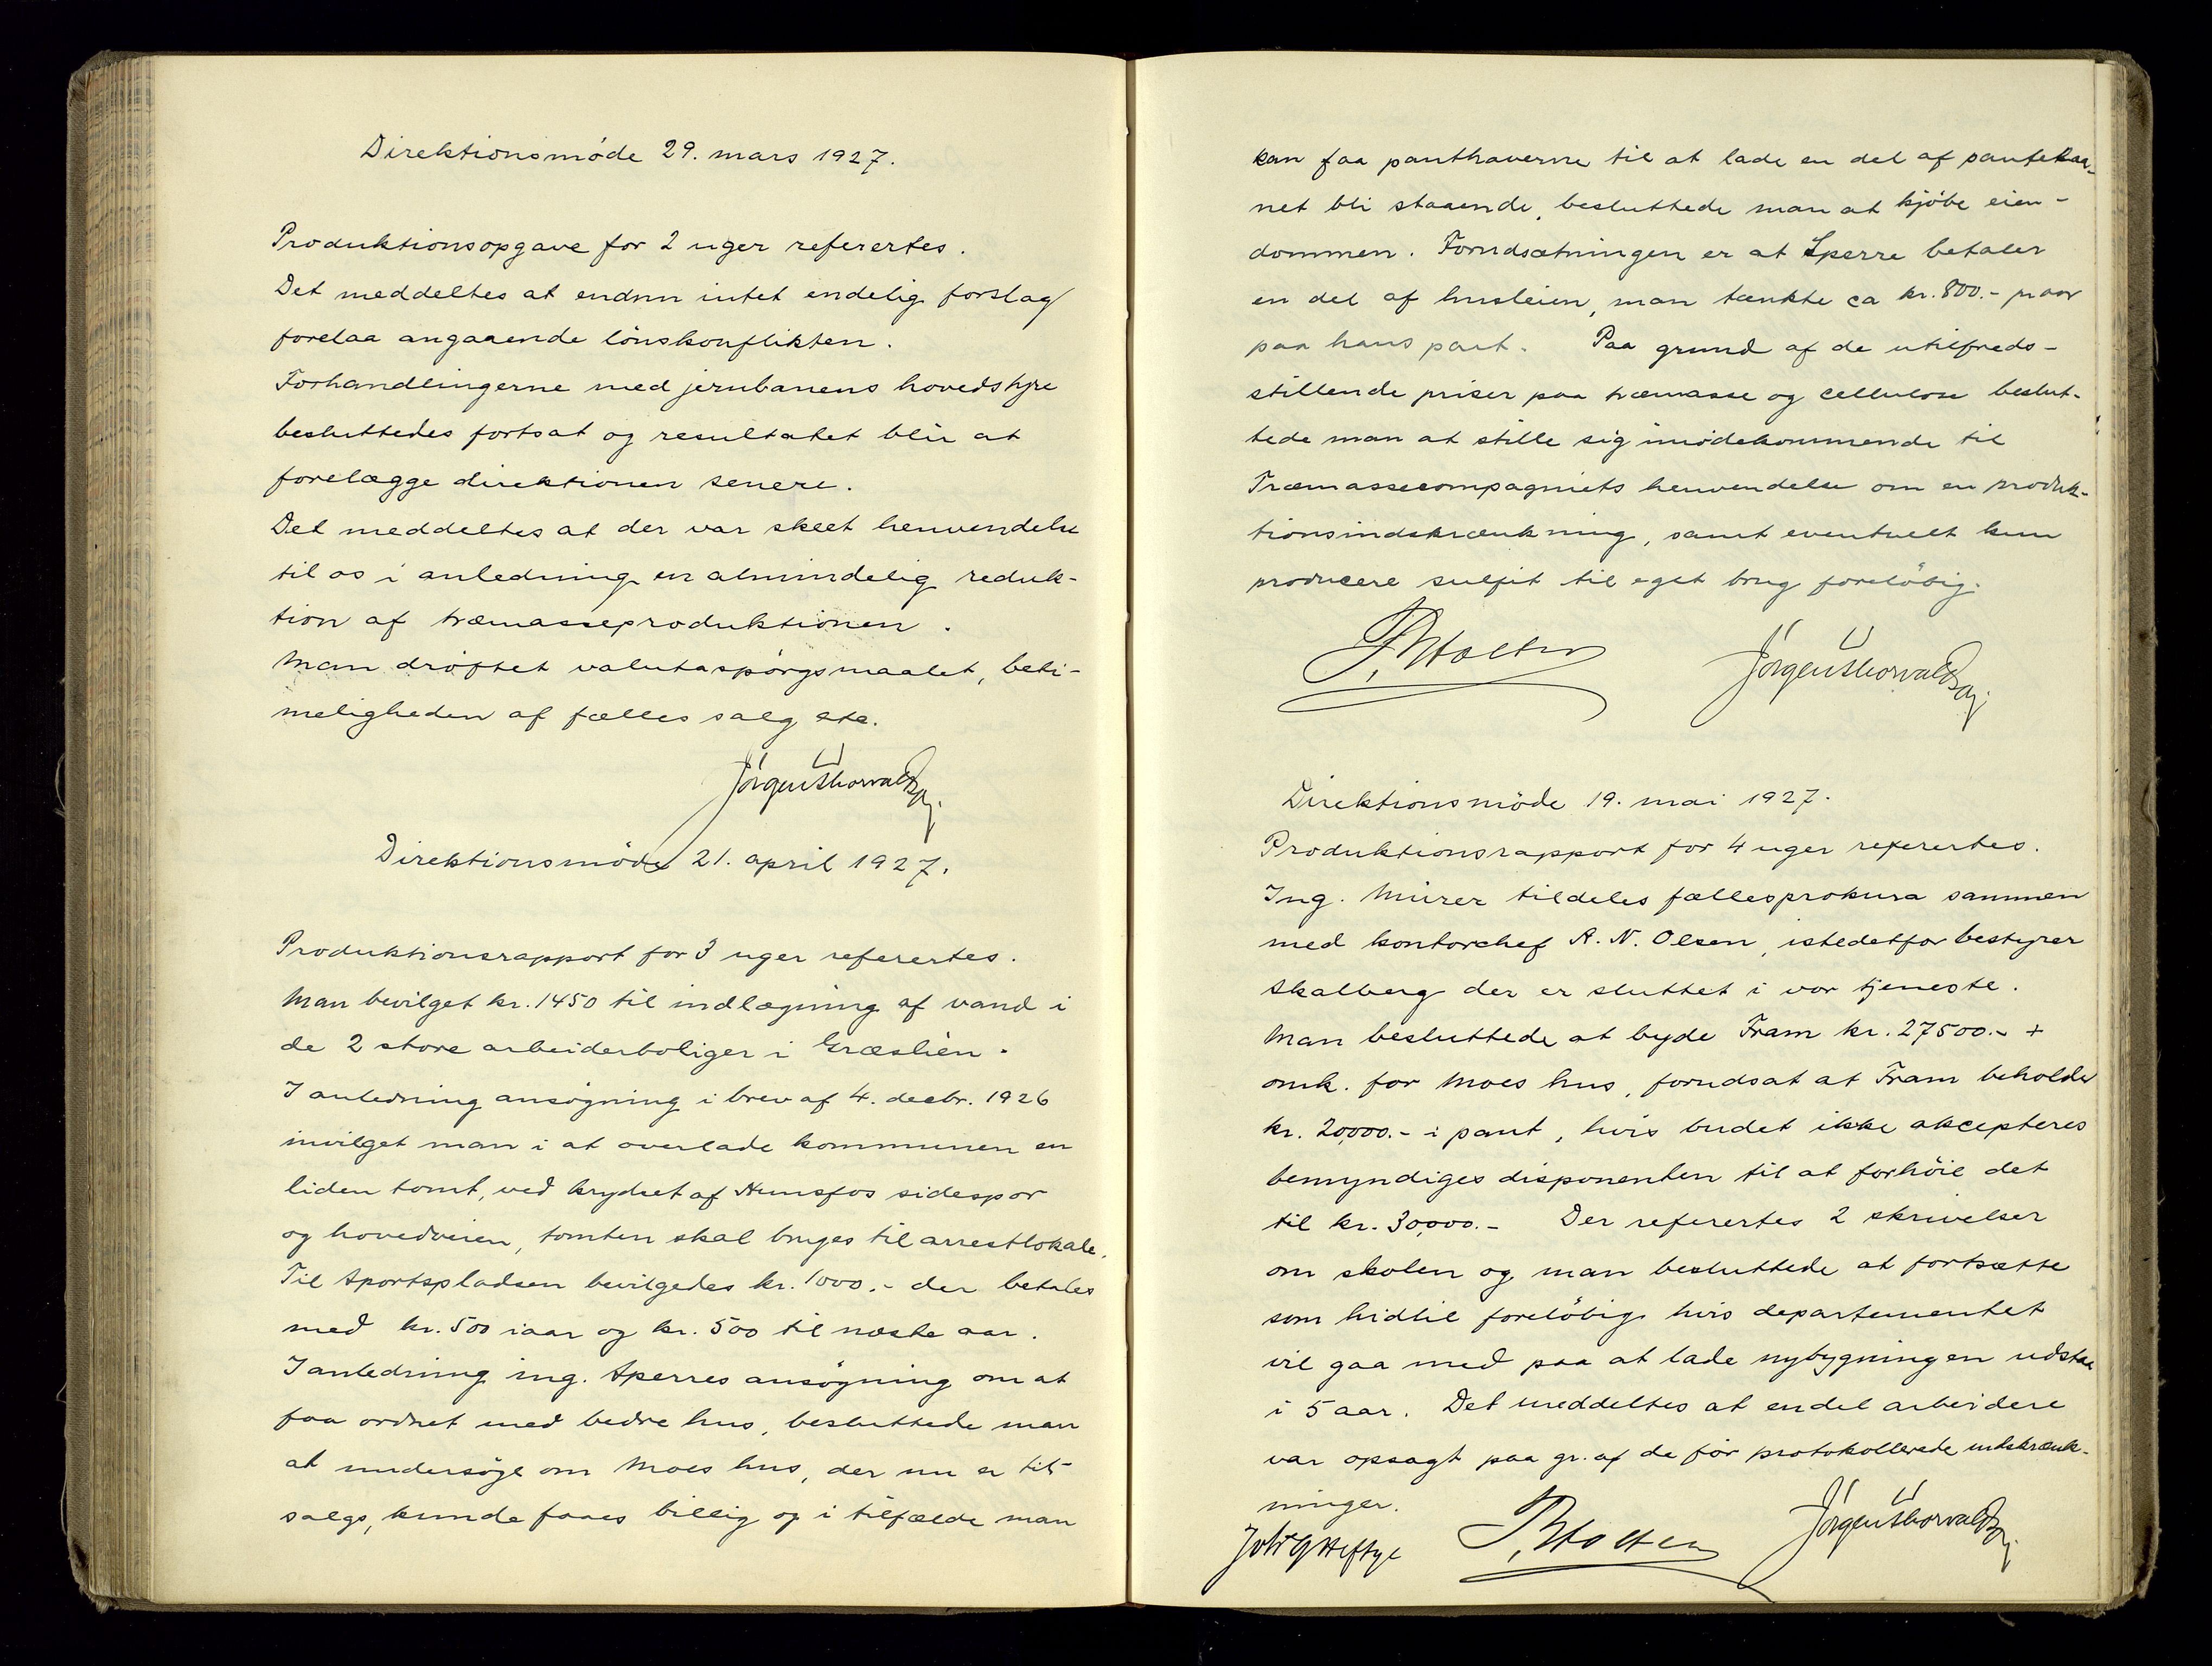 Direktionsmöde 29. mars 1927.
Produktionsopgave for 2 uger referertes.
Det meddeltes at endnu intet endelig forslag
forelaa angaaende lönskonflikten.
Forhandlingerne med jernbanens hovedstyre
besluttedes fortsat og resultatet blir at
forelægge direktionen senere.
Det meddeltes at der var skeet henvendelse
til os i anledning en almindelig reduk-
tion af træmasseproduktionen.
Man dröftet valutaspörgsmaalet, beti-
meligheden af fælles salg etc.
Direktionsmöde 21. april 1927.
Produktionsrapport for 3 uger referertes.
Man bevilget kr. 1450 til indlægning af vand i
de 2 store arbeiderboliger i Græslien.
I anledning ansögning i brev af 4. decbr. 1926
invilget man i at overlade kommunen en
liden tomt, ved krydset af Hunsfos sidespor
og hovedveien, tomten skal bruges til arrestlokale.
Til Sportspladsen bevilgedes kr. 1000.- der betales
med kr. 500 iaar og kr. 500 til næste aar.
I anledning ing. Sperres ansögning om at
faa ordnet med bedre hus, besluttede man
at undersöge om Moes hus, der nu er til
salgs, kunde faaes billig og i tilfælde man
kan faa panthaverne til at lade en del af pantelaa-
net bli staaende, besluttede man at kjöbe eien-
dommen. Forudsætningen er at Sperre betaler
en del af husleien, man tænkte ca kr. 800.- pr aar
paa hans part. Paa grund af de utilfreds-
stillende priser paa træmasse og cellulose beslut-
tede man at stille sig imödekommende til
Træmassecompagniets henvendelse om en produk-
tionsindskrænkning, samt eventuelt kun
producere sulfit til eget brug forelöbig.
Direktionsmöde 19. mai 1927.
Produktionsrapport for 4 uger referertes.
Ing. Mürer tildeles fællesprokura sammen
med kontorchef A. N. Olsen, istedetfor bestyrer
Skalberg der er sluttet i vor tjeneste.
Man besluttede at byde Fram kr. 27500.- +
omk. for Moes hus, forudsat at Fram beholder
kr. 20,000.- i pant, hvis budet ikke akcepteres
bemyndiges disponenten til at forhöie det
til kr. 30,000.- Der referertes 2 skrivelser
om skolen og man besluttede at fortsætte
som hidtil forelöbig hvis departementet
vil gaa med paa at lade nybygningen udstaa
i 5 aar. Det meddeltes at endel arbeidere
var opsagt paa gr. af de för protokollerede indskrænk-
ninger.